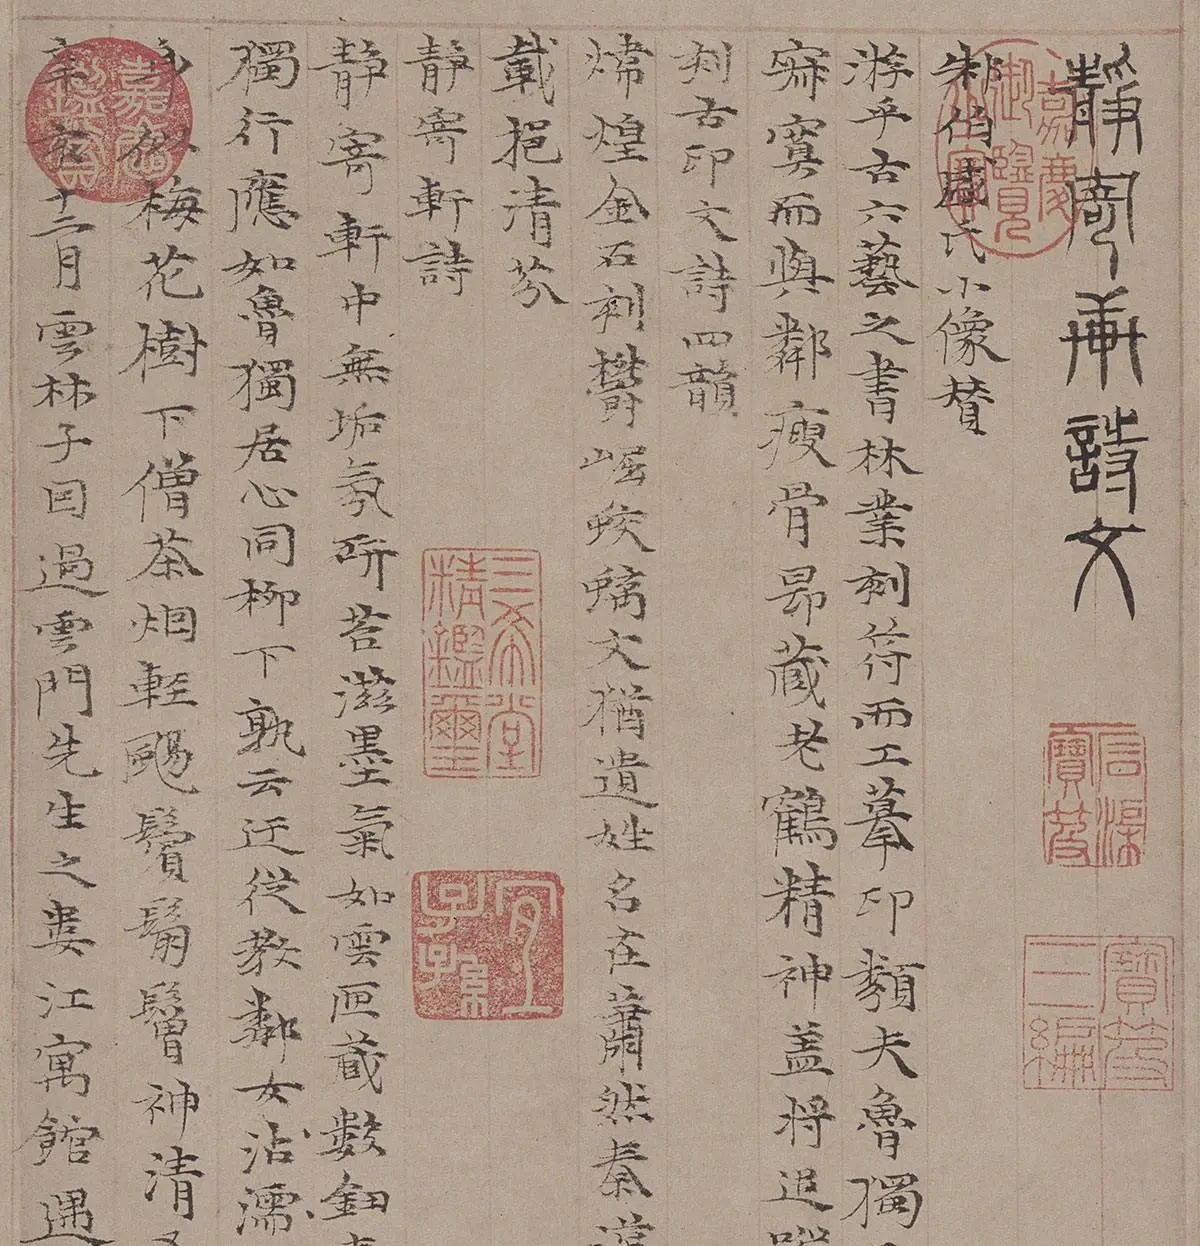 靜寄軒詩文
朱伯盛氏小像贊
游乎古六藝之書林業刻符而工摹印類夫魯獨
寂寞而與鄰瘦骨昂藏老鶴精神蓋將追蹤
刻古印文詩四韻
煒煌金石刻鬱崛蛟螭文猶遺姓名在蕭然秦漢
載挹清芬
靜寄軒詩
靜寄軒中無垢氛硏苔滋墨氣如雲匣藏數鈕
獨行應如魯獨居心同柳下孰云迂從教鄰女沾濡
梅花樹下僧茶烟輕颺鬢鬅鬙神清又
十二月雲林子因過雲門先生之婁江寓館遇
嘉慶御覽之寶
嘉慶鑑賞
三希堂精鑑璽
宜子孫
石渠寶笈
寶笈三編